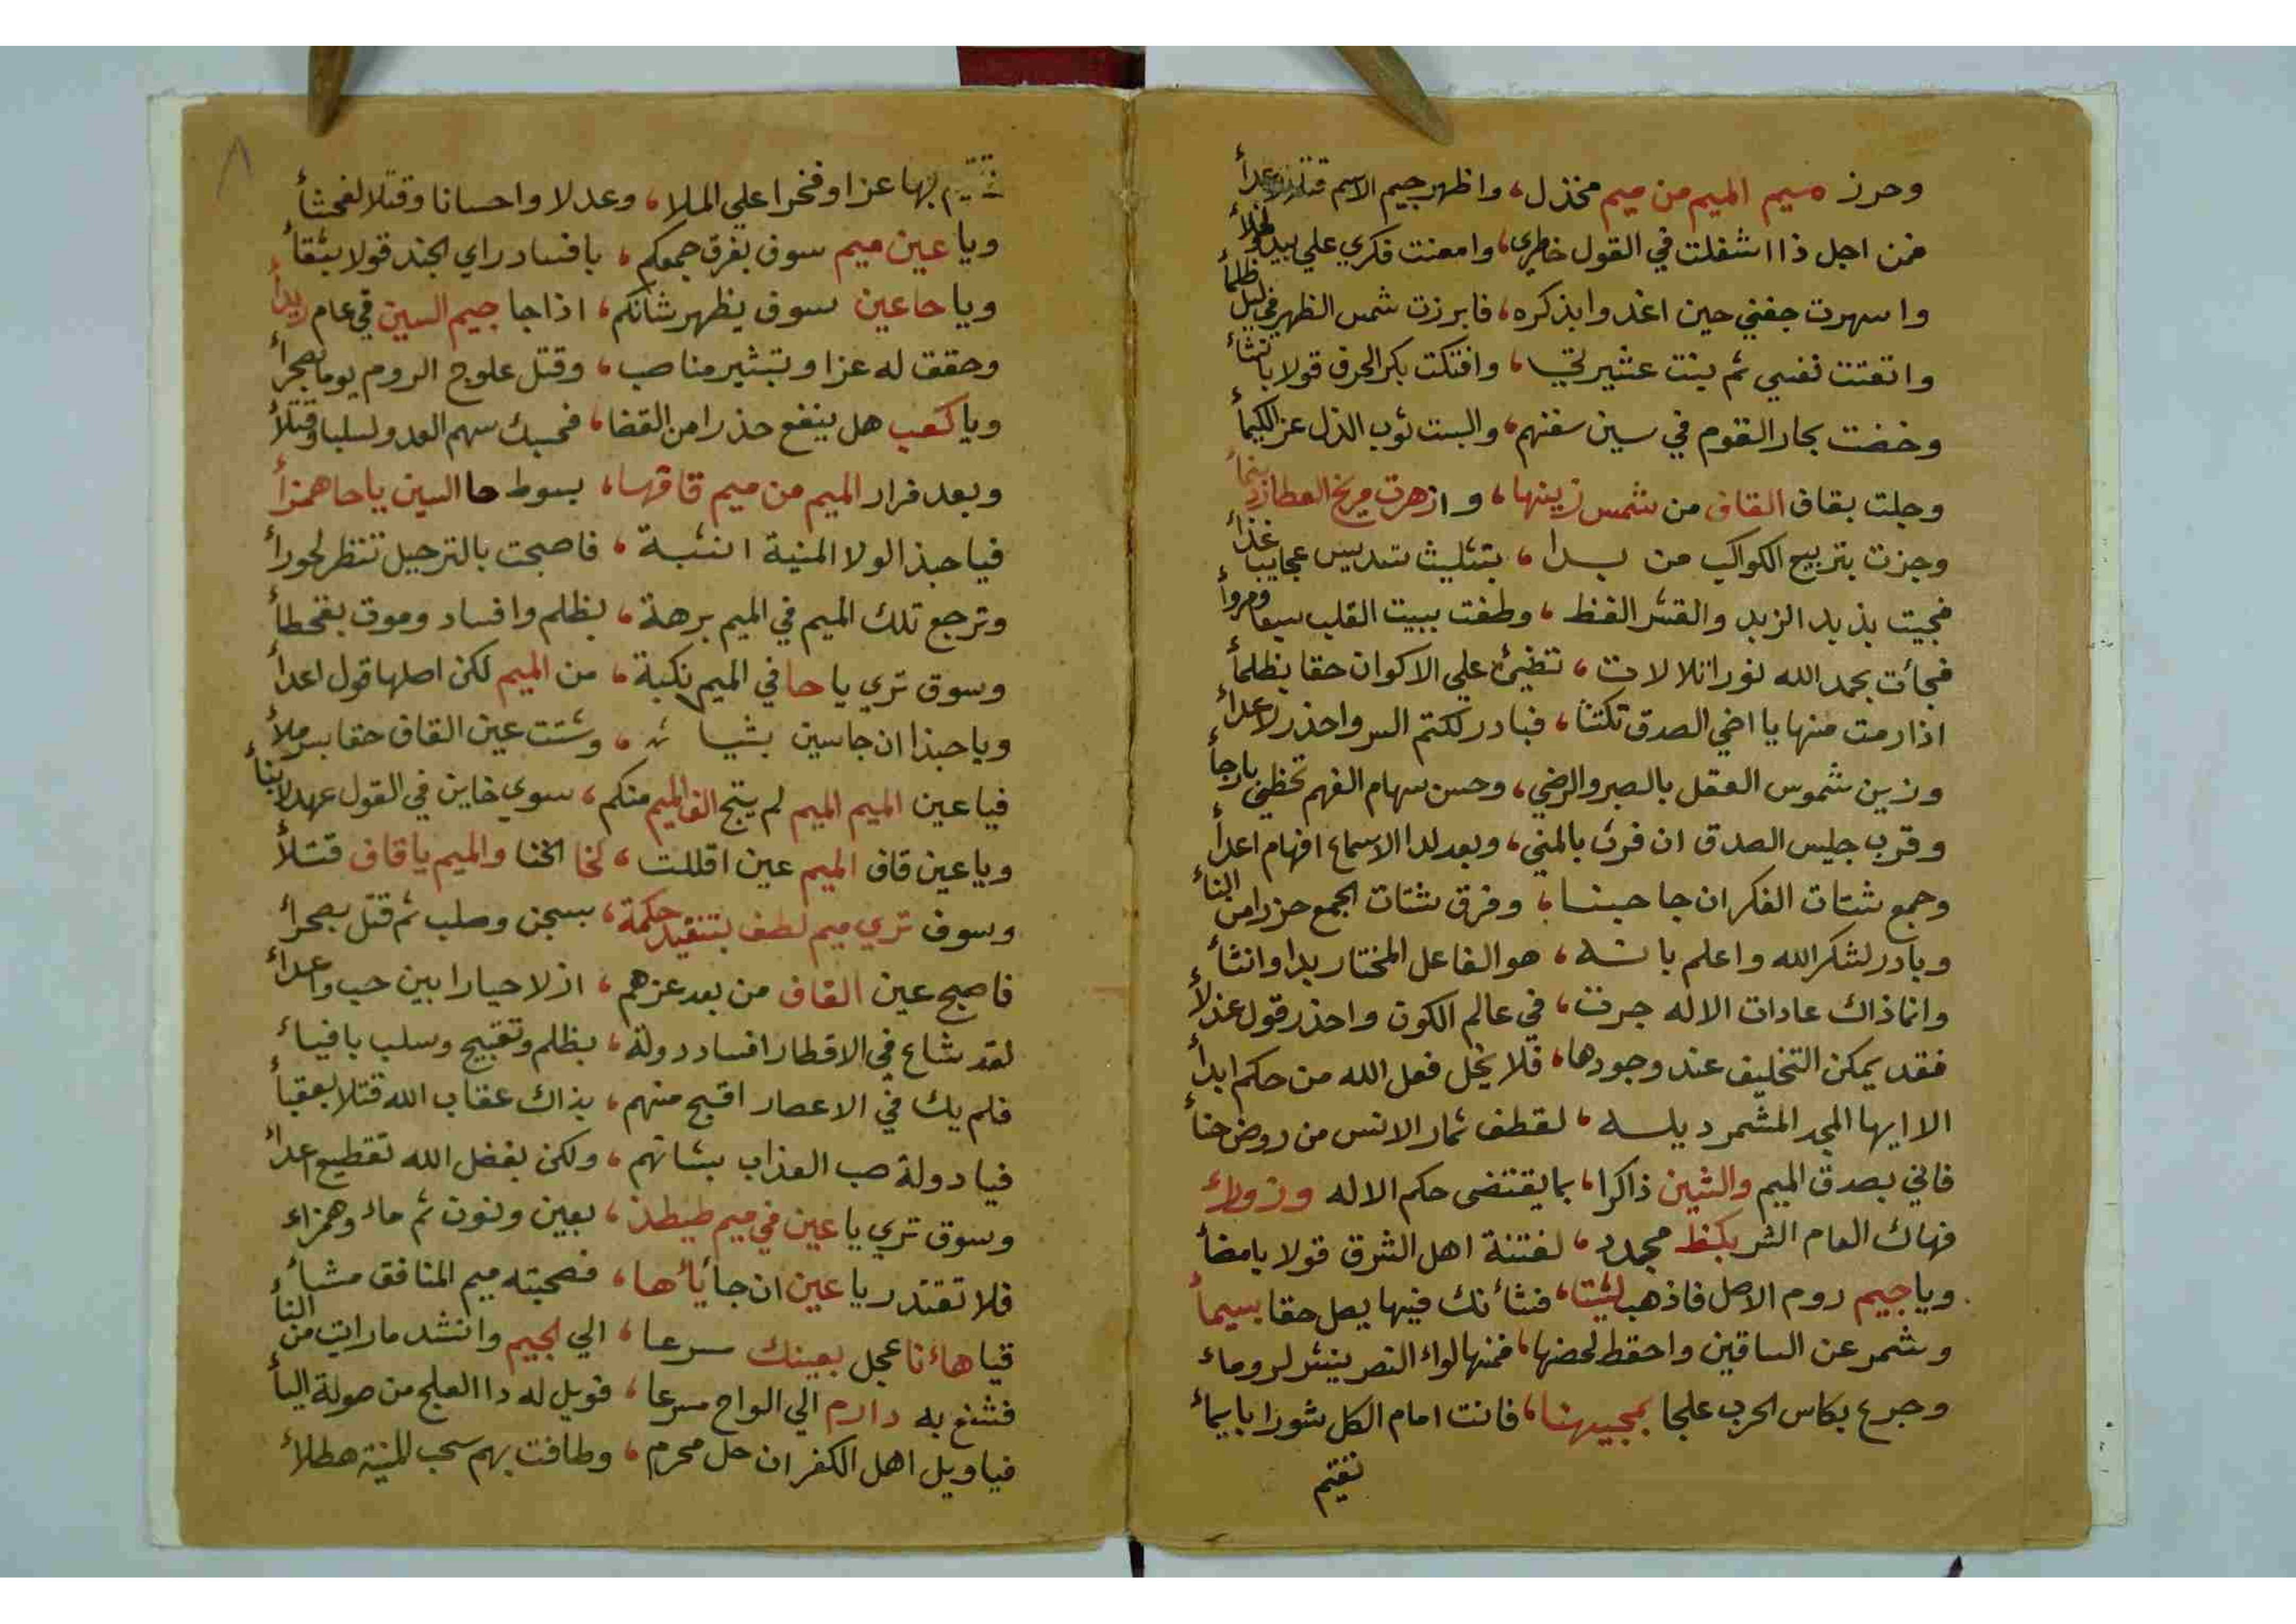 وحرز ميم الميم من ميم مخذل، واظهر جيم الاسم
فمن اجل ذا اشغلت في القول خاطري، وامعنت فكري علي
واسهرت جفني حين اغدوا بذكره، فابرزت شمس الظهر في ليل ظلمأ
واتعتت نفسي ثم بنت عشيرتي، وافتكت بكر الحرف قولا بانشاء
وخضت بحار القوم في سين سفنهم، والبست ثوب الذل عز
وجلت بقاف القاف من شمس زينها، وازهرت مريخ العطارد
وجزت بتربيع الكواكب من بدا، بتثليث تسديس عجايبا غذاء
فجيت بذيد الزبد والقشر الفظ، وطفت ببيت القلب سعا ومروأ
فجأت بحمد الله نورا تلا لات، تضيئ علي الاكوان حقا بظلمأ
اذا رمت منها يا اخي الصدق تكتنا، فبادر لكتم السر واحذر لاعداء
وزين شموس العقل بالصبر والرضي، وحسن سهام الفهم تحظي بارجأ
وقرب جليس الصدق ان فرت بالمني، وبعد لدا الاسماع افهام اعدأ
وجمع شتات الفكر ان جا حبنا، وفرق شتات الجمع حزرا من البناء
وبادر لشكر الله واعلم بانه، هو الفاعل المختار بدا وانشأ
وانما ذاك عادات الاله جرت، في عالم الكون واحذر قول عذلأ
فقد يمكن التخليف عند وجودها، فلا يخل فعل الله من حكم ابدأ
الا ايها المجد المشمر ديله، لقطف ثمار الانس من روض حنأ
فاني بصدق الميم والشين ذاكرا، بما يقتضي حكم الاله وزوراء
فهاك العام الشر بكنظ مجدد، لفتنة اهل الشرق قولا بامضأ
ويا جيم روم الاصل فاذهب لشتا، فشأنك فيها يصل حقا بسيمأ
وشمر عن الساقين واحقط لحضها، فمنها لواء النصر ينشر لروماء
وجرع بكاس الحرب علجا بمجيهنا، فانت امام الكل شورا بابيمأ
نقيم
بها عزا وفخرا علي الملا، وعدلا واحسانا وقتلا لفحشأ
ويا عين ميم سوف يفرق جمعكم، بافساد راي الجند قولا بثقأ
ويا حا عين سوف يظهر شأنكم، اذا جا جيم السين في عام
وحقق له عزا وتبشير مناصب، وقتل علوج الروم يوما بصحرأ
ويا كعب هل ينفع حذرا من القضا، فحسبك سهم العدو لسلبا وقتلأ
وبعد فرار الميم من ميم قاقها، بسوط حا السين يا حا همزأ
فيا حبذ الولا المنية انثبة، فاصبحت بالترحيل تنتظر لحوراء
وترجع تلك الميم في الميم برهة، بظلم وافساد وموق بقحطأ
وسوق تري يا حا في الميم نكبة، من الميم لكن اصلها قول اعدأ
ويا حبذا ان جا سين بشيا ئه، وشتت عين القاف حقا برملأ
فيا عين الميم الميم لم ينج الف الميم منكم، سوي خاين في القول عهد
ويا عين قاف الميم عين اقللت، لخا الخنا والميم يا قاف قتلأ
وسوف تري ميم لطف بتنفيد حكمة، بسجن وصلب ثم قتل بصحراء
فاصبح عين القاف من بعد عزهم، ازلا حيارا بين حب واعداء
لقد شاع في الاقطار افساد دولة، بظلم وتقبيح وسلب بافياء
فلم يك في الاعصار اقبح منهم، بذاك عقاب الله قتلا بعقبأ
فيا دولة صب العذاب بشاتهم، ولكن بفضل الله تقطيع اعداء
وسوق تري يا عين في ميم طيطذ، بعين ونون ثم حاء وهمزاء
فلا تقتدر يا عين ان جا يأها، فصحبته ميم المنافق مشأ
فيا هاءنا عجل بعينك سرعا، الي الجيم وانشد ما رايت من النأ
فشنع به دارم الي الواح سرعا، فويل له دا العلج من صولة اليأ
فيا ويل اهل الكفر ان حل محرم، وطافت بهم سحب المنية هطلأ